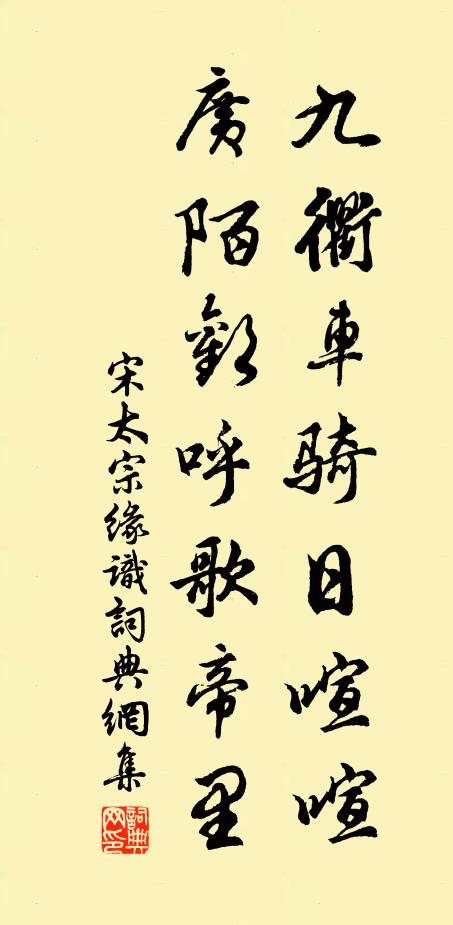 九衢車騎日喧喧
廣陌歡呼歌帝里
宋太宗緣識詞典網集
詞典網印